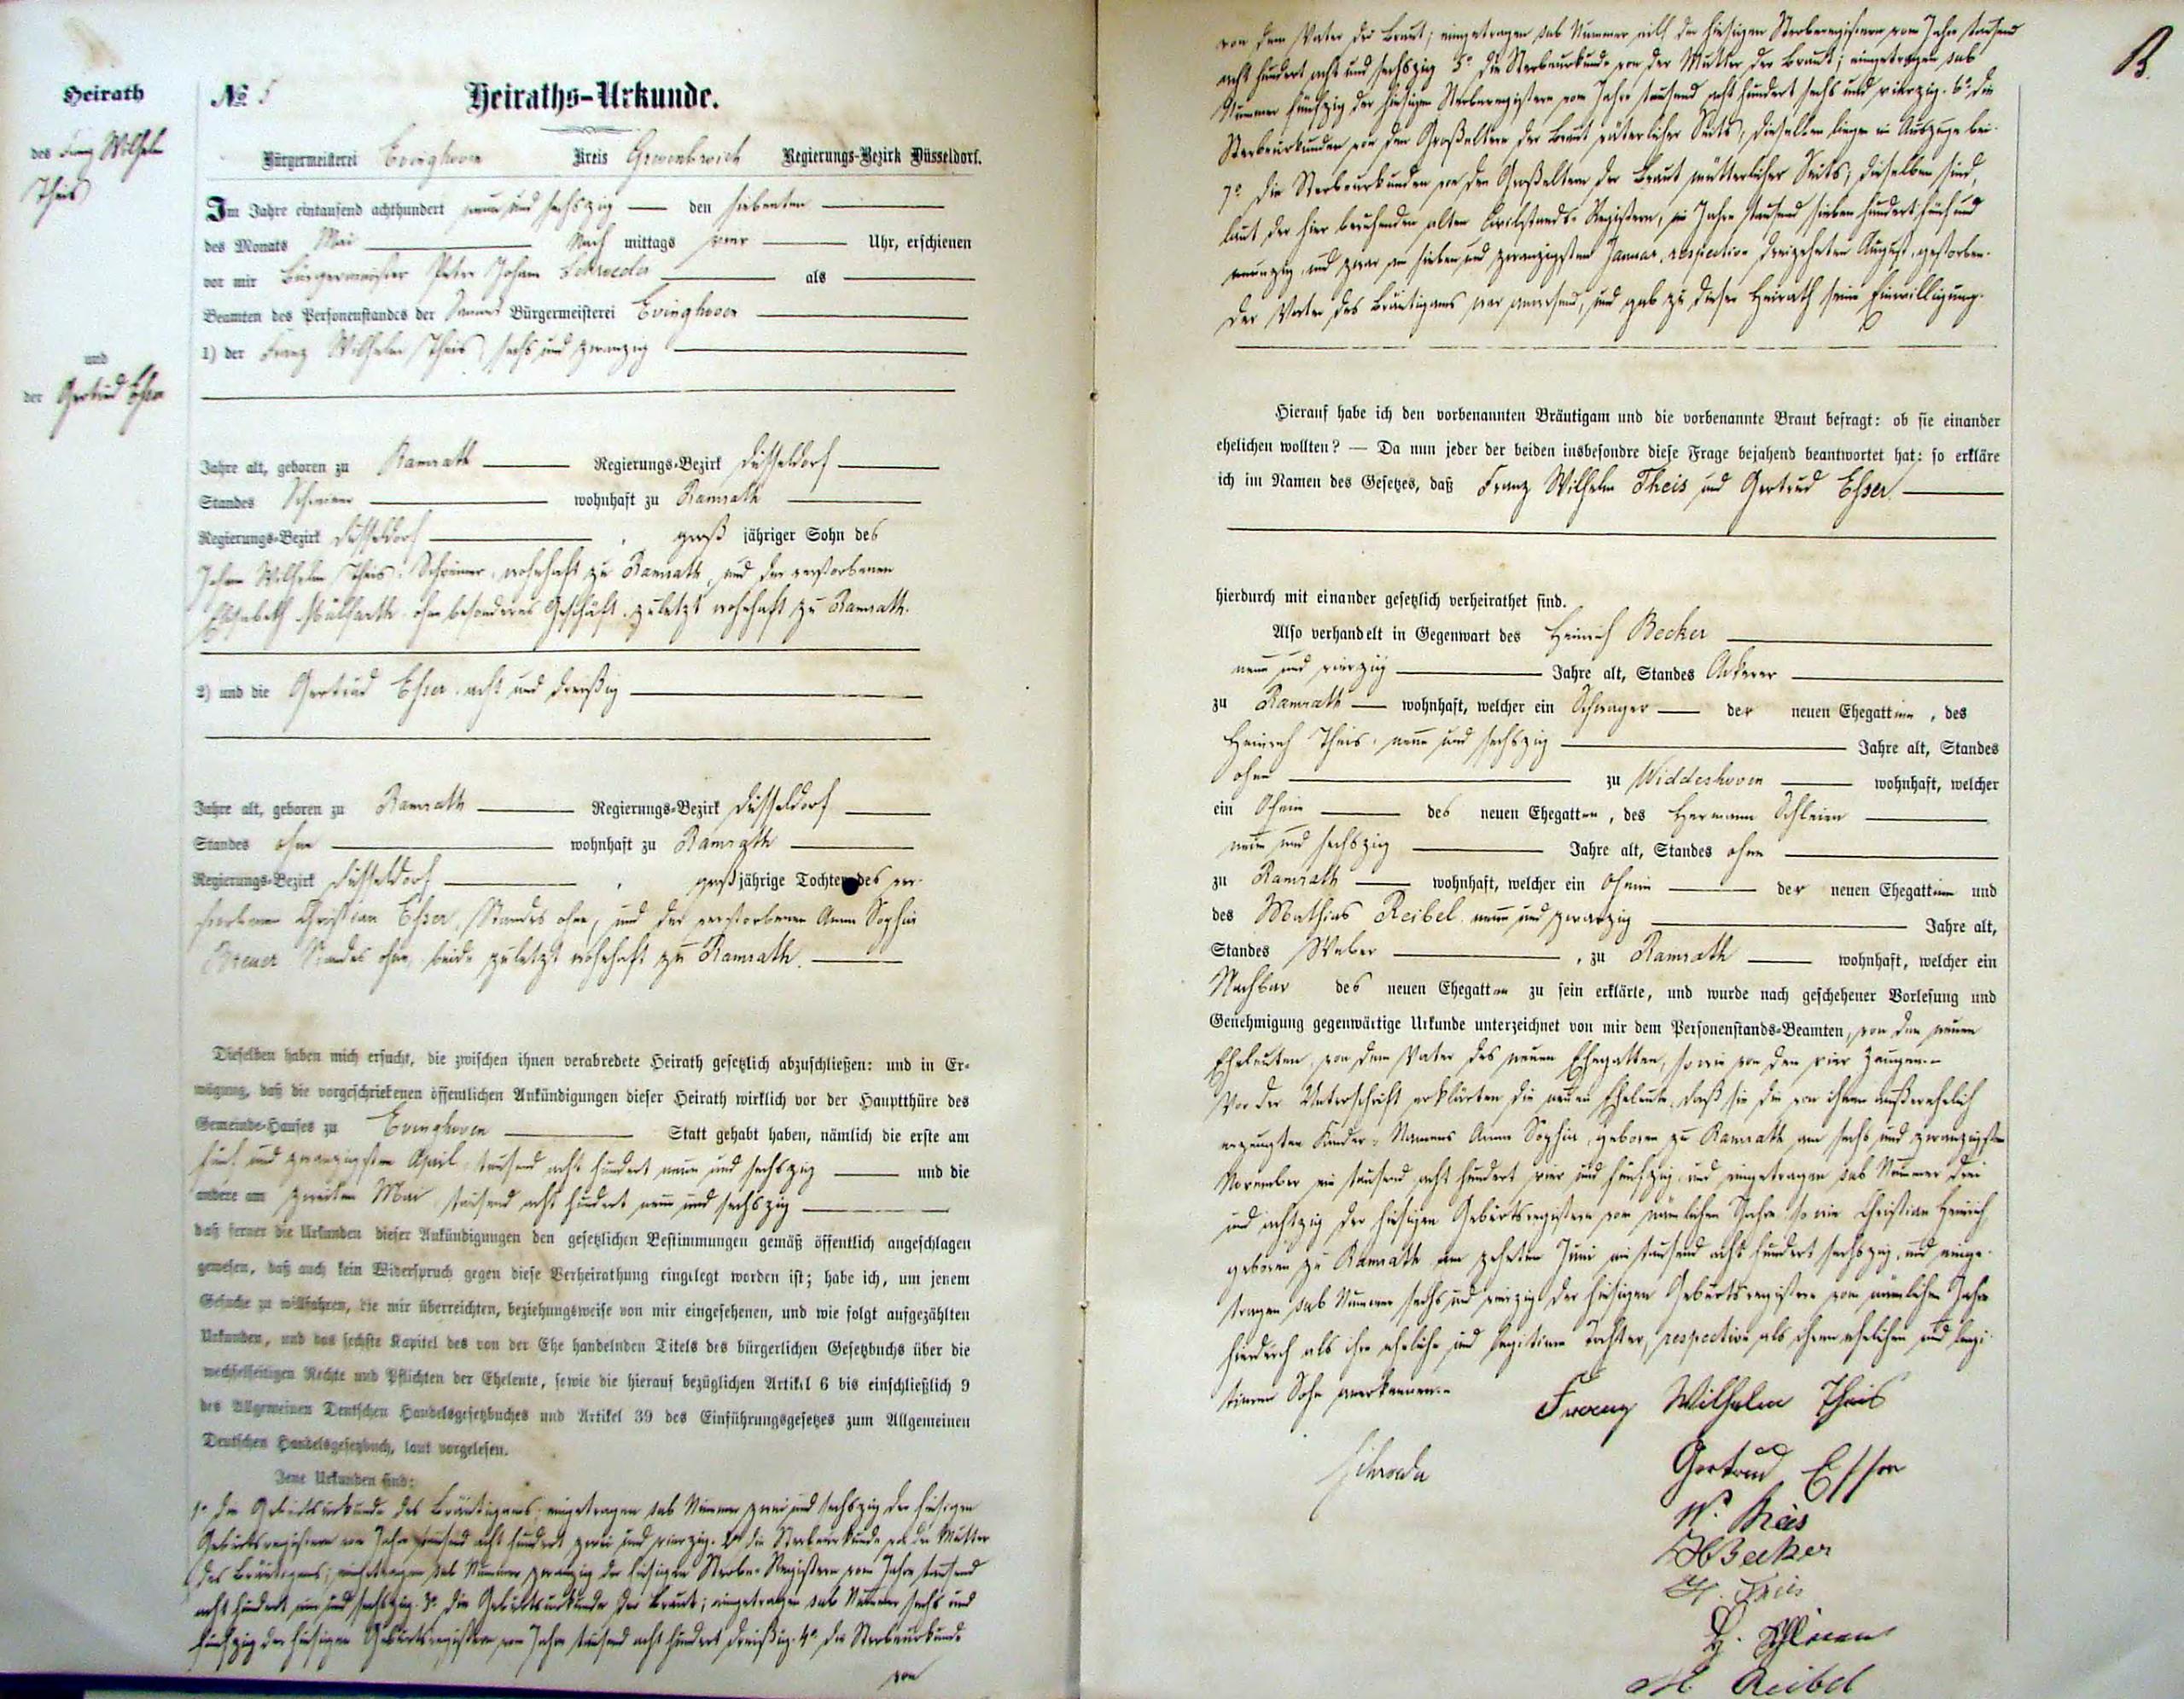 Heirath
des Franz Wilhelm
Theis
und
der Gertrud Esser
№ 5
Heiraths-Urkunde.
Bürgermeisterei Evinghoven Kreis Grevenbroich Regierungs-Bezirk Düsseldorf.
Im Jahre eintausend achthundert neun und sechszig den siebenten
des Monats Mai Nach mittags Uhr, erschienen
vor mir Bürgermeister Peter Johann Schroeder als
Beamten des Personenstandes der Sammt Bürgermeisterei Evinghoven
1) der Franz Wilhelm Theis, sechs und zwanzig
Jahre alt, geboren zu Ramrath Regierungs-Bezirk Düsseldorf
Standes Schreiner wohnhaft zu Ramrath
Regierungs-Bezirk Düsseldorf, groß jähriger Sohn des
Johann Wilhelm Theis, Schreiner, wohnhaft zu Ramrath, und der verstorbenen
Elisabeth Mülfarth ohne besonderes Geschäft, zuletzt wohnhaft zu Ramrath.
2) und die Gertrud Esser, acht und dreißig
Jahre alt, geboren zu Ramrath Regierungs-Bezirk Düsseldorf
Standes ohne wohnhaft zu Ramrath
Regierungs-Bezirk Düsseldorf, großjährige Tochter des ver-
storbenen Christian Esser, Standes ohne, und der verstorbenen Anna Sophia
Breuer Standes ohne, beide zuletzt wohnhaft zu Ramrath.
Dieselben haben mich ersucht, die zwischen ihnen verabredete Heirath gesetzlich abzuschließen: und in Er-
wägung, daß die vorgeschriebenen öffentlichen Ankündigungen dieser Heirath wirklich vor der Hauptthüre des
Gemeinde-Hauses zu Evinghoven Statt gehabt haben, nämlich die erste am
fünf und zwanzigsten April, tausend acht hundert neun und sechszig und die
andere am zweiten Mai tausend acht hundert neun und sechszig
daß ferner die Urkunden dieser Ankündigungen den gesetzlichen Bestimmungen gemäß öffentlich angeschlagen
gewesen, daß auch kein Widerspruch gegen diese Verheirathung eingelegt worden ist; habe ich, um jenem
Gesuche zu willfahren, die mir überreichten, beziehungsweise von mir eingesehenen, und wie folgt aufgezählten
Urkunden, und das sechste Kapitel des von der Ehe handelnden Titels des bürgerlichen Gesetzbuchs über die
wechselseitigen Rechte und Pflichten der Eheleute, sowie die hierauf bezüglichen Artikel 6 bis einschließlich 9
des Allgemeinen Deutschen Handelsgesetzbuches und Artikel 39 des Einführungsgesetzes zum Allgemeinen
Deutschen Handelsgesetzbuch, laut vorgelesen.
Jene Urkunden sind:
1° die Geburtsurkunde des Bräutigams; eingetragen sub Nummer zwei und sechszig der hiesigen
Geburtsregistern vom Jahre tausend acht hundert zwei und vierzig. 2° die Sterbeurkunde von der Mutter
des Bräutigams; eingetragen sub Nummer zwanzig der hiesigen Sterbe-Registern vom Jahre tausend
acht hundert ein und sechszig. 3° die Geburtsurkunde der Braut; eingetragen sub Nummer sechs und
fünfzig der hiesigen Geburtsregistern vom Jahre tausend acht hundert dreißig. 4° die Sterbeurkunde
von
B.
von dem Vater der Braut; eingetragen sub Nummer eilf der hiesigen Sterberegistern vom Jahre tausend
acht hundert acht und sechszig 5° die Sterbeurkunde von der Mutter der Braut; eingetragen sub
Nummer fünfzig der hiesigen Sterberegistern vom Jahre tausend acht hundert sechs und vierzig. 6° die
Sterbeurkunden von den Großeltern der Braut väterlicher Seits; dieselben liegen in Auszuge bei.
7° die Sterbeurkunden von den Großeltern der Braut mütterlicher Seits; dieselben sind,
laut der hier beruhenden alten Civilstands-Registern, im Jahre tausend sieben hundert fünf und
neunzig und zwar am sieben und zwanzigsten Januar, respective dreizehnten August, gestorben.
Der Vater des Bräutigams war anwesend, und gab zu dieser Heirath seine Einwilligung.
Hierauf habe ich den vorbenannten Bräutigam und die vorbenannte Braut befragt: ob sie einander
ehelichen wollten? — Da nun jeder der beiden insbesondre diese Frage bejahend beantwortet hat: so erkläre
ich im Namen des Gesetzes, daß Franz Wilhelm Theis und Gertrud Esser
hierdurch mit einander gesetzlich verheirathet sind.
Also verhandelt in Gegenwart des Heinrich Becker
neun und vierzig Jahre alt, Standes Ackerer
zu Ramrath wohnhaft, welcher ein Schwager der neuen Ehegattinn, des
Heinrich Theis, neun und sechszig Jahre alt, Standes
ohne zu Widdeshoven wohnhaft, welcher
ein Oheim des neuen Ehegatten, des Hermann Schleien
neun und sechszig Jahre alt, Standes ohne
zu Ramrath wohnhaft, welcher ein Oheim der neuen Ehegattinn und
des Mathias Reibel neun und zwanzig Jahre alt,
Standes Weber, zu Ramrath wohnhaft, welcher ein
Nachbar des neuen Ehegatten zu sein erklärte, und wurde nach geschehener Vorlesung und
Genehmigung gegenwärtige Urkunde unterzeichnet von mir dem Personenstands-Beamten, von den neuen
Eheleuten, von dem Vater des neuen Ehegatten, sowie von den vier Zeugen.
Vor der Unterschrift erklärten die neuen Eheleute, daß sie die von ihnen außerehelich
erzeugten Kinder, Namens Anna Sophia, geboren zu Ramrath am sechs und zwanzigsten
November ein tausend acht hundert vier und fünfzig und eingetragen sub Nummer drei
und achtzig der hiesigen Geburtsregistern vom nämlichen Jahre so wie Christian Heinrich
geboren zu Ramrath am zehnten Juni ein tausend acht hundert sechszig, und einge-
tragen sub Nummer sechs und vierzig der hiesigen Geburtsregistern vom nämlichen Jahre
hierdurch als ihre eheliche und legitime Tochter, respective als ihren ehelichen und legi-
timen Sohn anerkennen.
Franz Wilhelm Theis
Schroeder
Gertrud Esser
W. Theis
HBecker
H. Theis
H. Schleien
M. Reibel